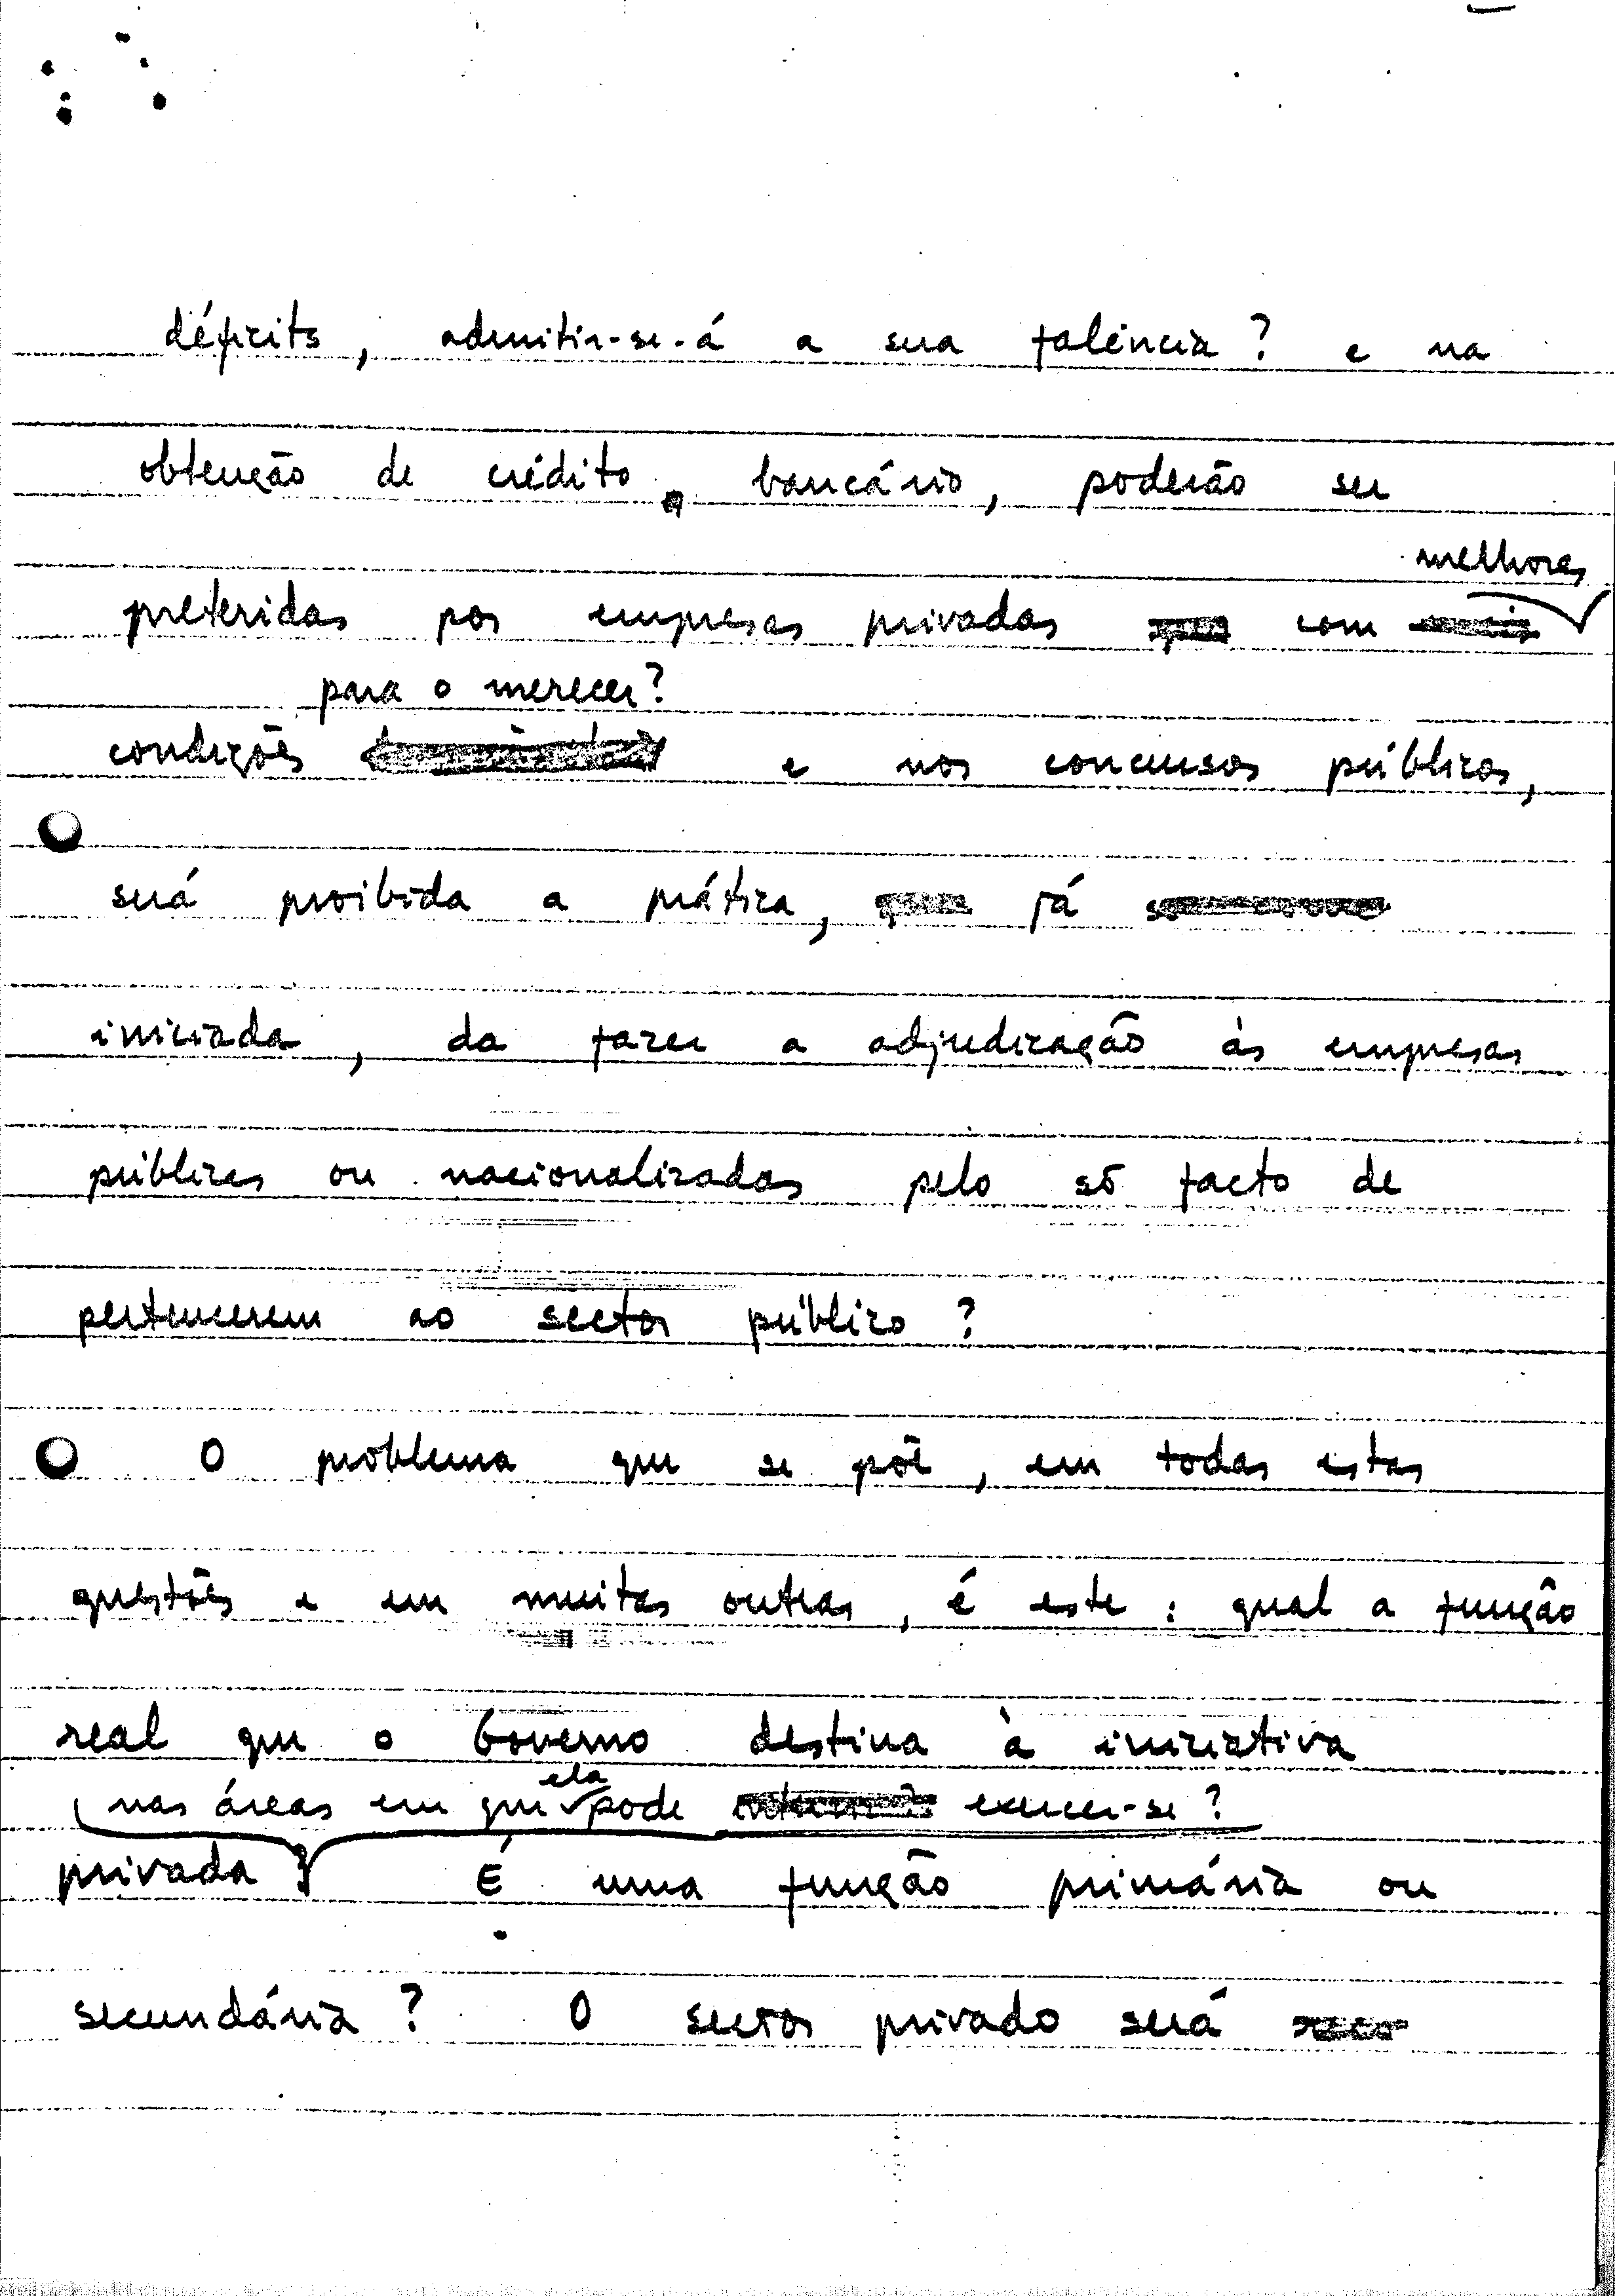 déficits, admitir-se-á a sua falência? e na
obtenção de crédito bancário, poderão ser
melhores
preteridas por empresas privadas com
para o merecer?
condições e nos concursos públicos,
será proibida a prática, já
iniciada, da fazer a adjudicação às empresas
públicas ou nacionalizadas pelo só facto de
pertencerem ao sector público?
O problema que se põe, em todas estas
questões e em muitas outras, é este: qual a função
real que o Governo destina à iniciativa
nas áreas em que ela pode exercer-se?
privada É uma função primária ou
secundária? O sector privado será